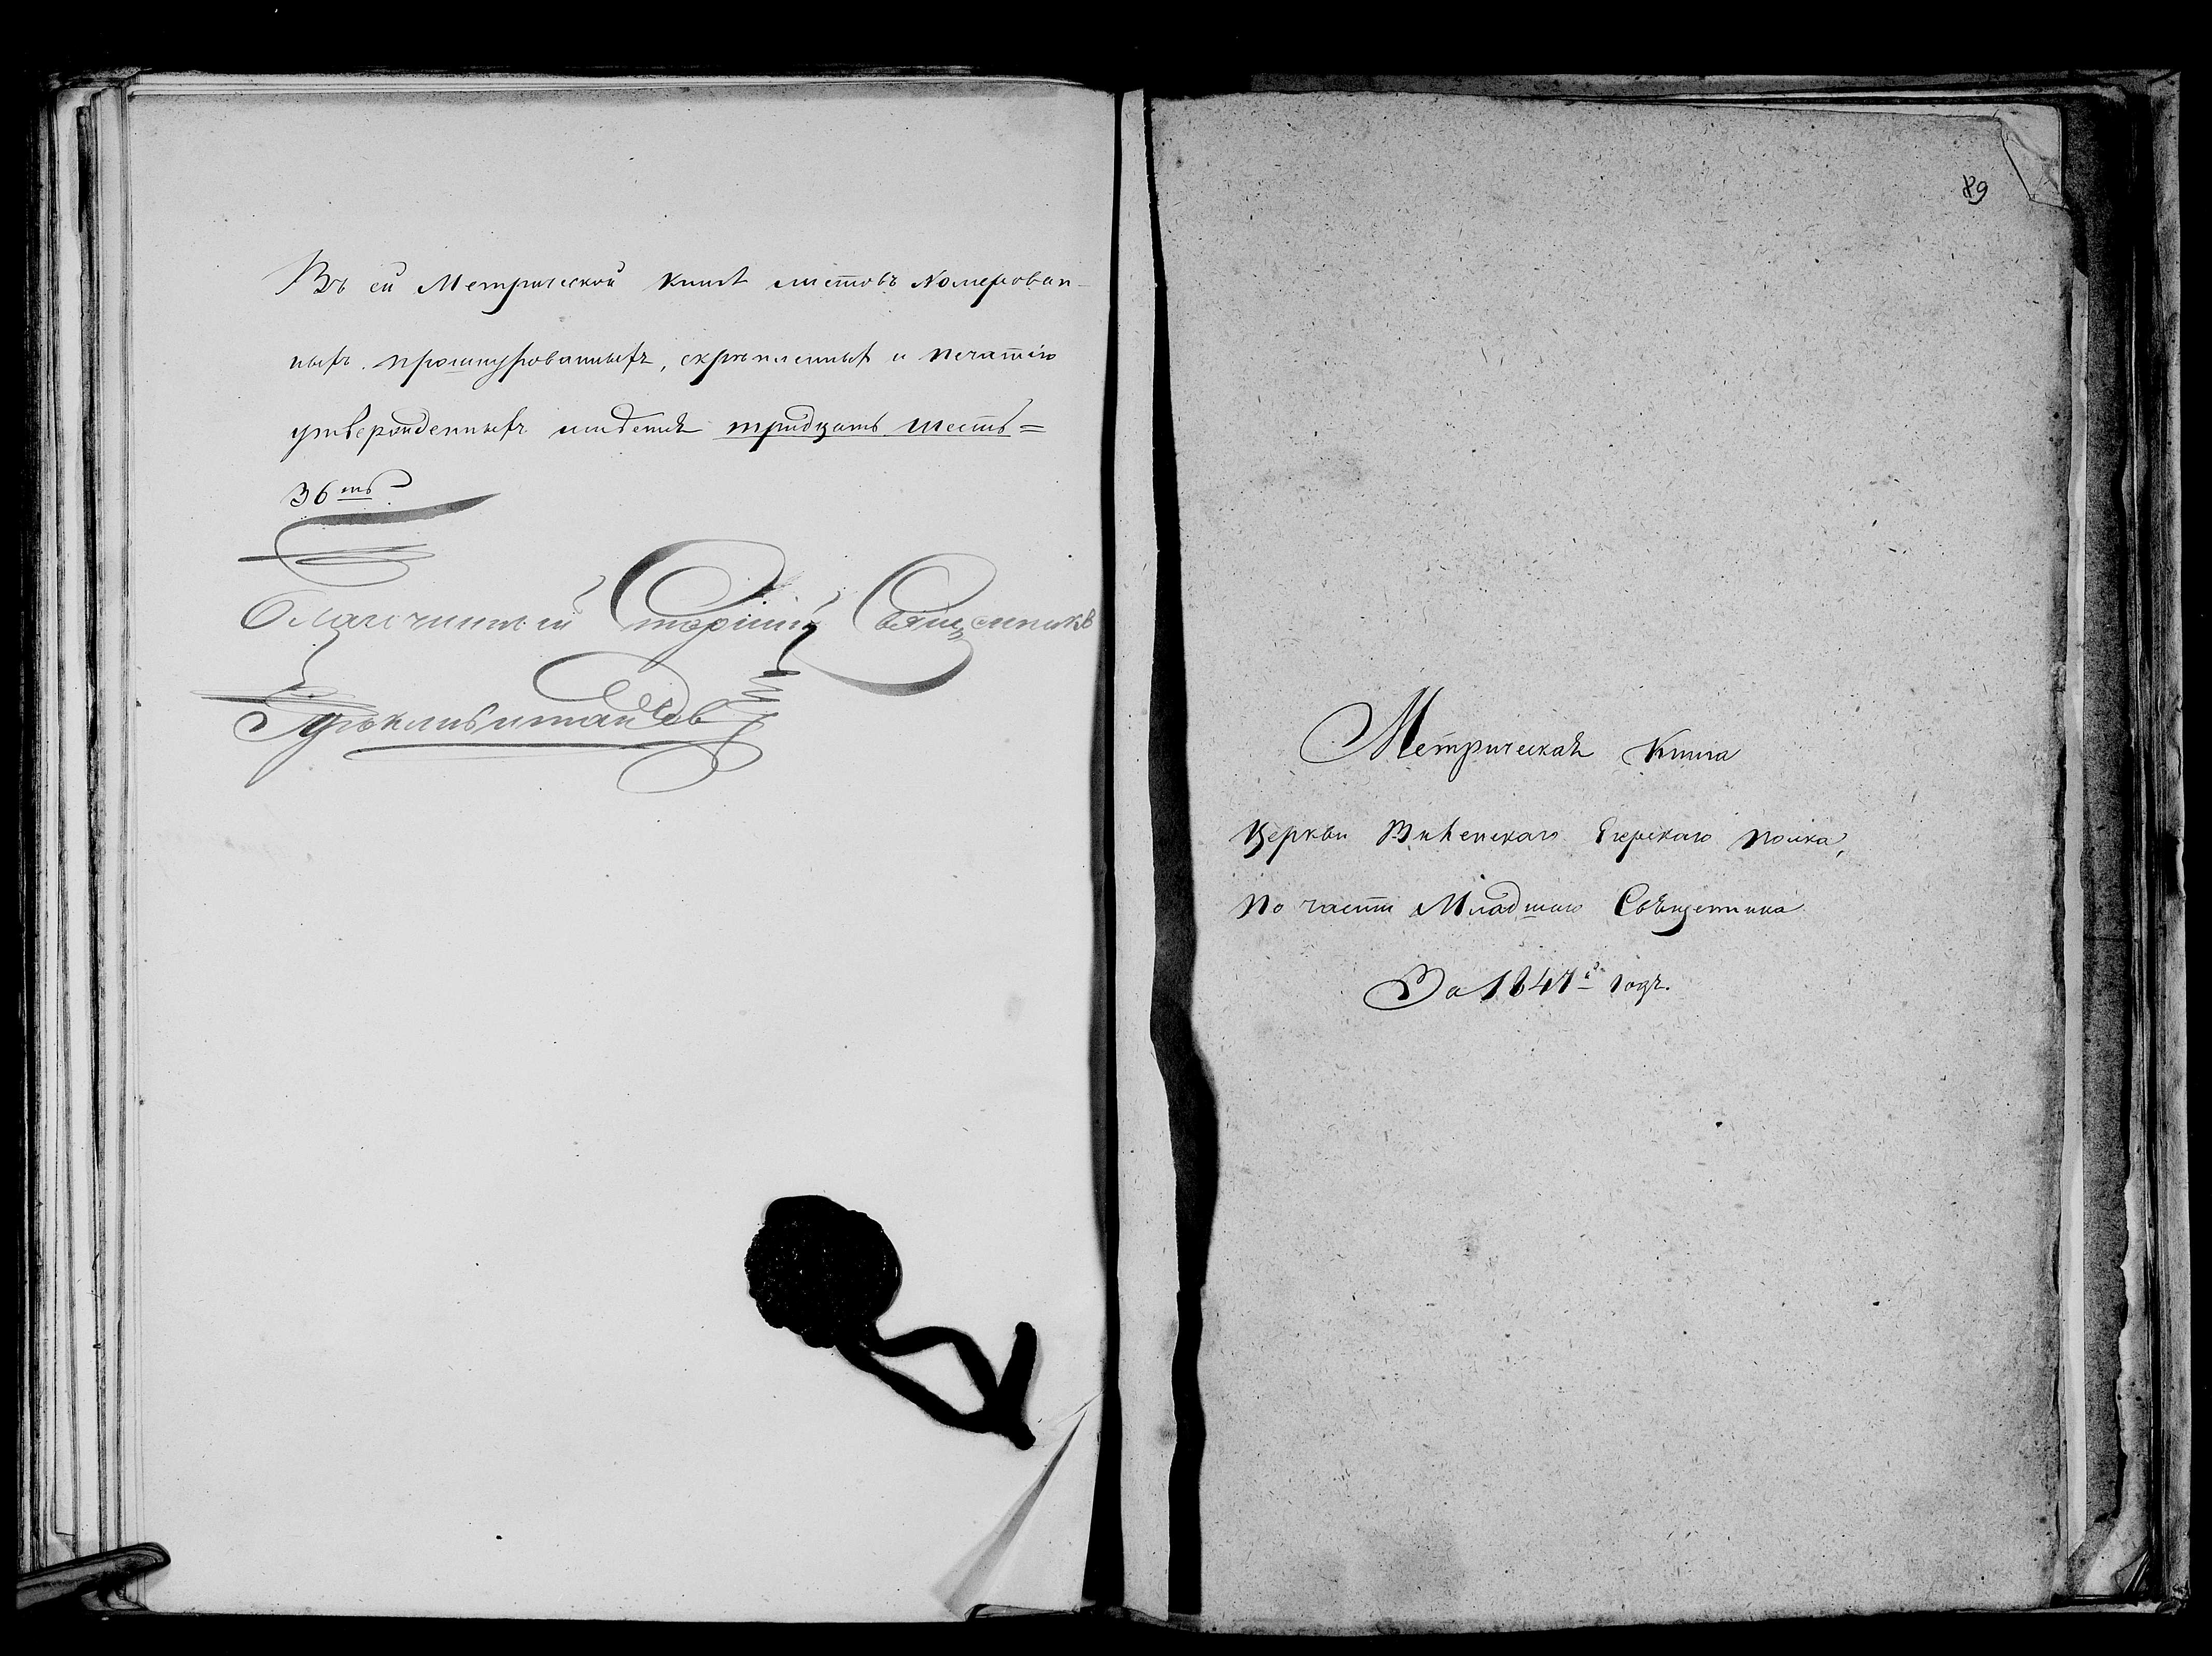 Въ сей Метрической Книгѣ листовъ Номерован-
ныхъ прошнурованныхъ, скрѣпленныхъ и печатію
утвержденныхъ имѣетъ тридцать шесть=
36 ть
Благочинный Старшій Священникъ
89
Метрическая Книга
Церкви Егерскаго полка,
по части Младшаго Священника
За 1841й годъ.